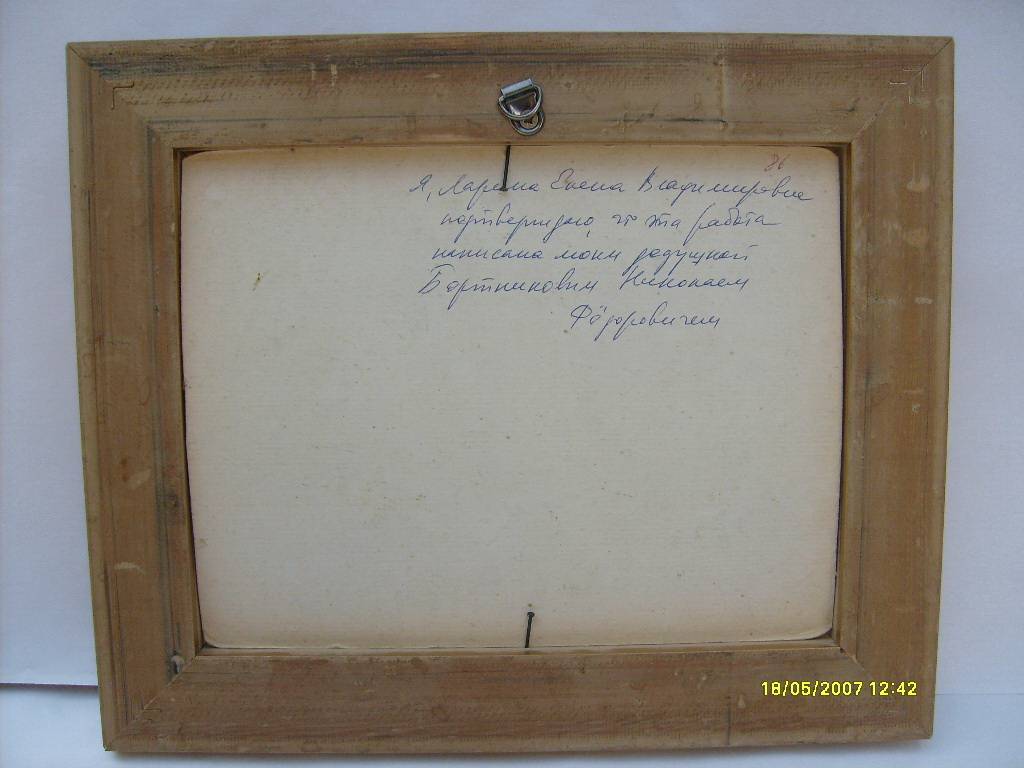 86
Я, Ларина Елена Владимировна
подтверждаю, что эта работа
написана моим дедушкой
Бортниковым Николаем
Фёдоровичем
18/05/2007 12:42